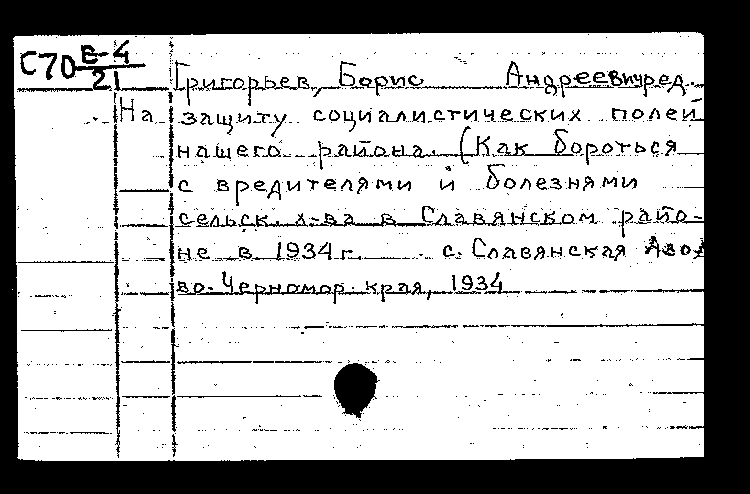 С70 В-4/21
Григорьев, Борис Андреевич, ред.
На защиту социалистических полей
нашего района. (Как бороться
с вредителями и болезнями
сельск. х-ва в Славянском райо-
не в 1934 г. с. Славянская Азо
во-Черномор. края, 1934